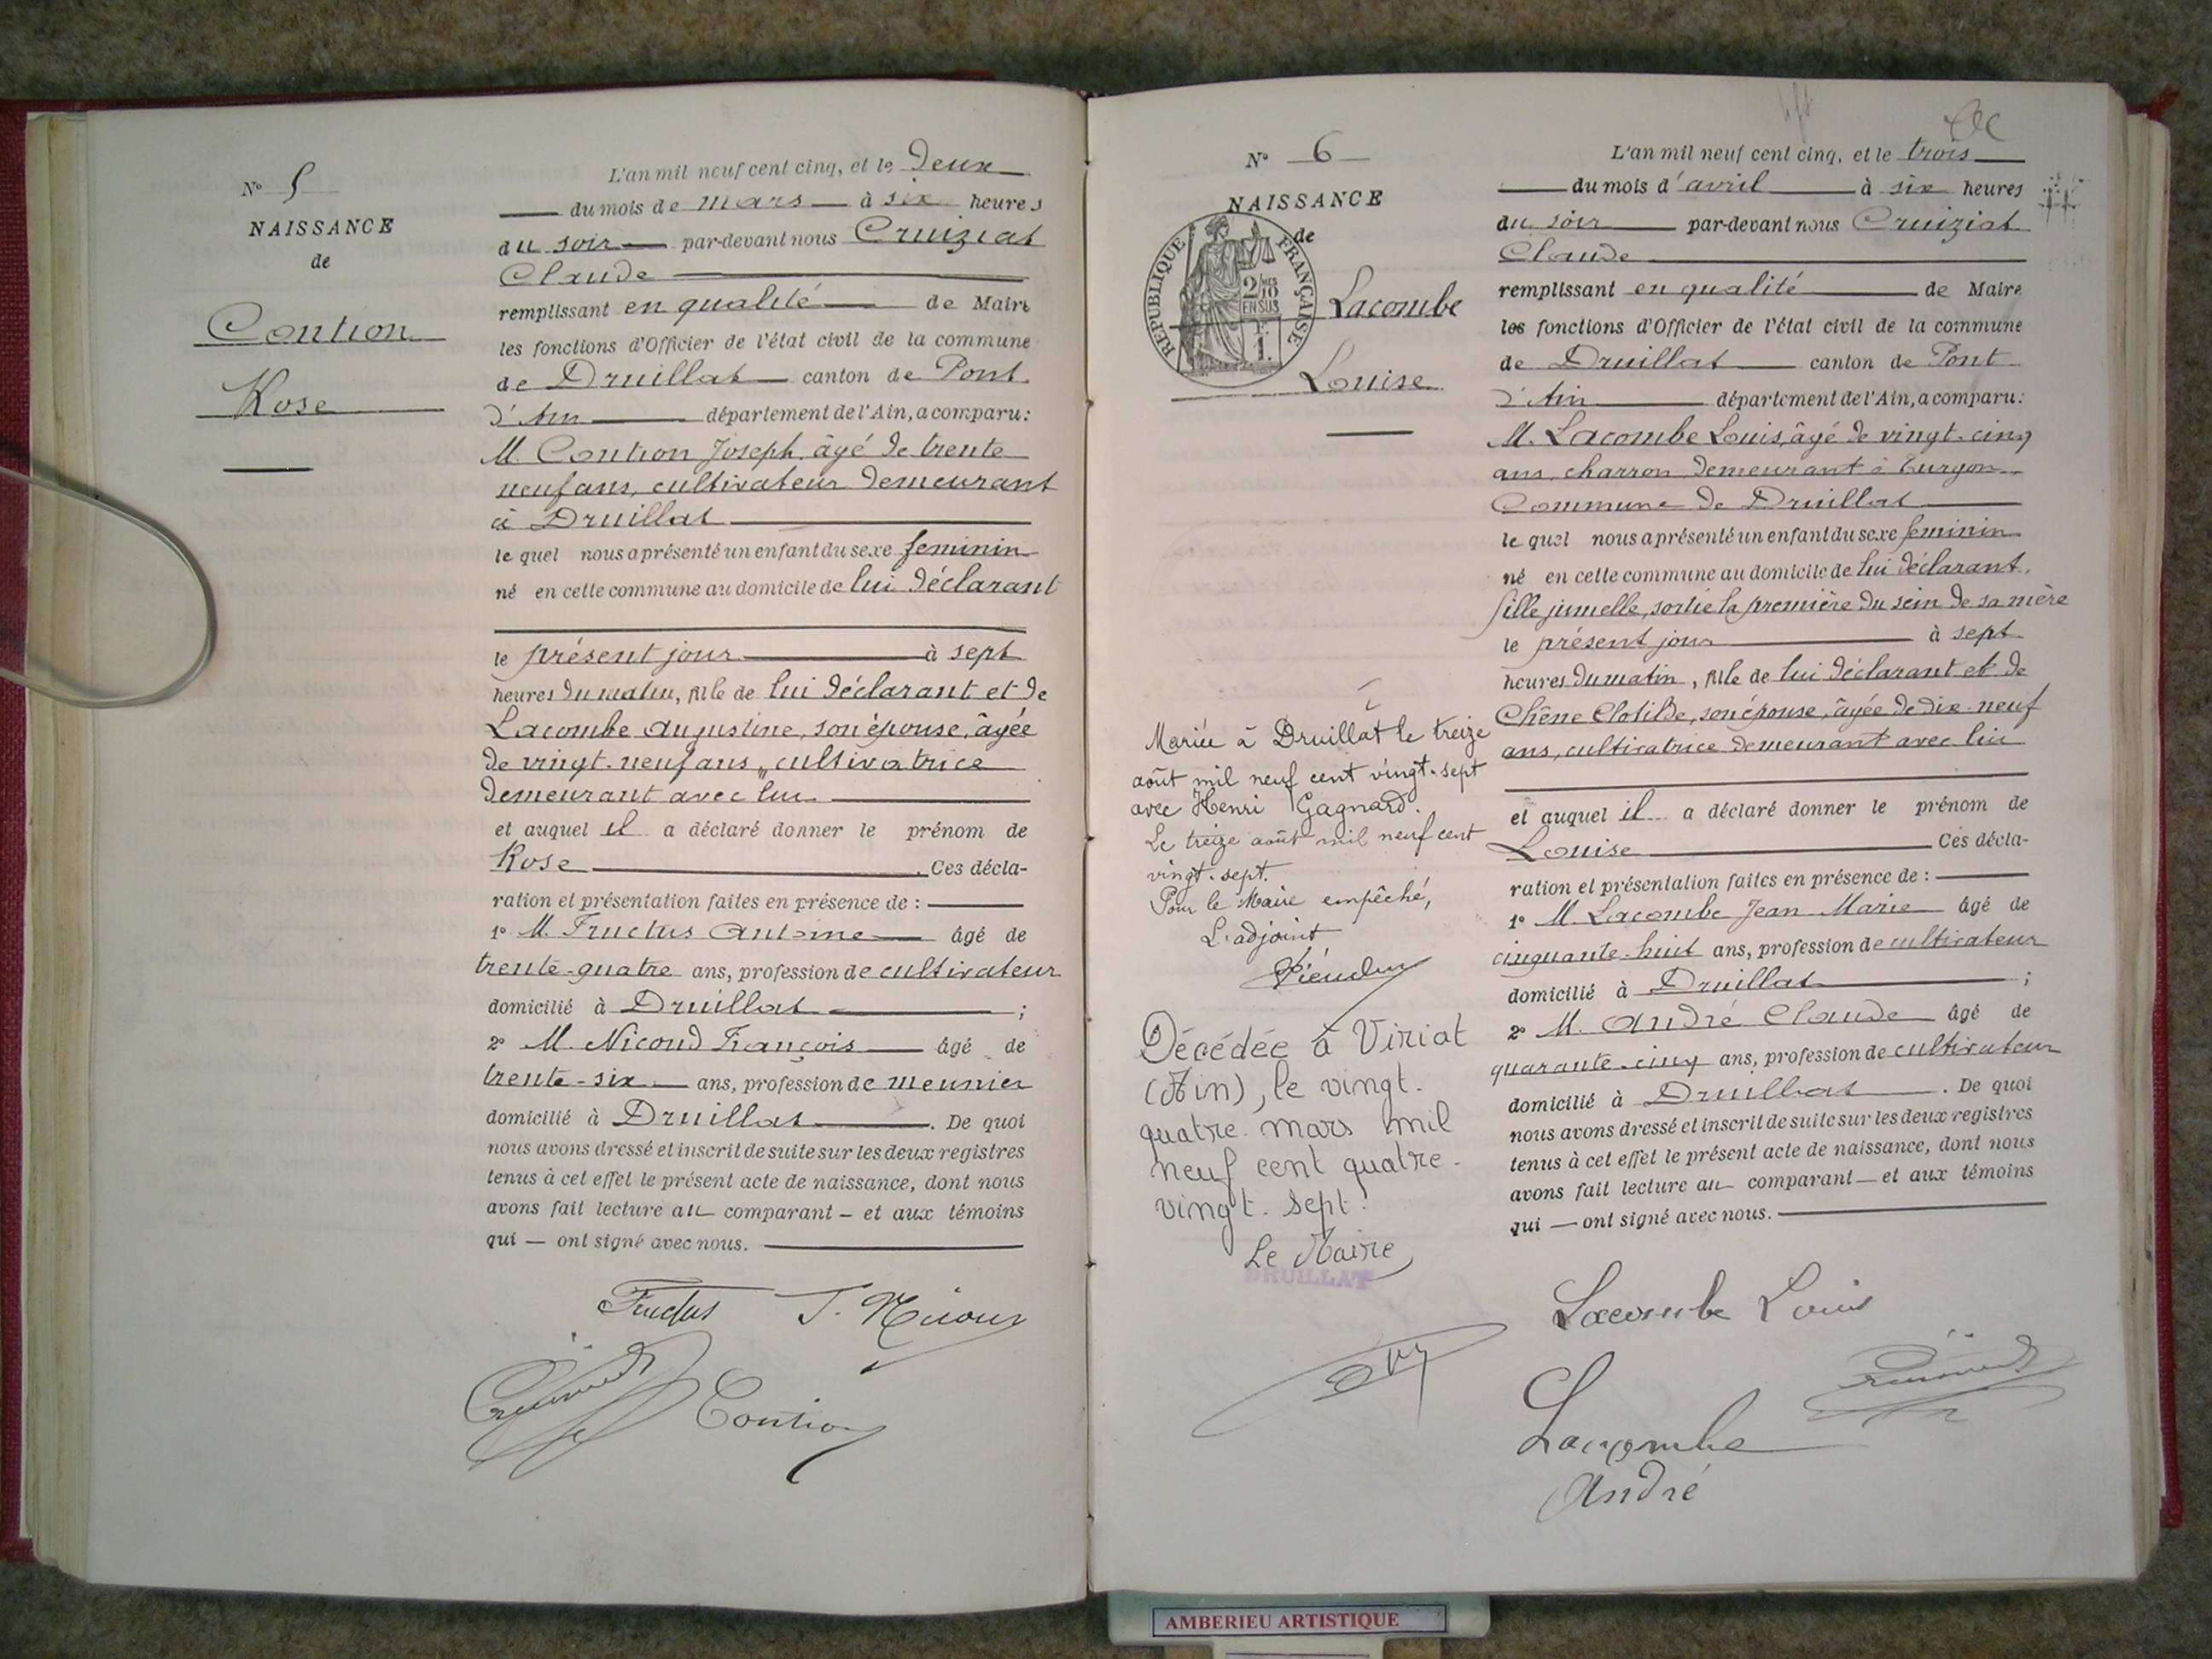 N° 5
NAISSANCE
de
Contion
Rose
L'an mil neuf cent cinq, et le Deux
du mois de Mars à six heures
du soir par-devant nous Cruiziat
Claude
remplissant en qualité de Maire
les fonctions d'Officier de l'état civil de la commune
de Druillat canton de Pont
d'Ain département de l'Ain, a comparu :
M. Contion Joseph, âgé de trente
neuf ans, cultivateur demeurant
à Druillat
le quel nous a présenté un enfant du sexe feminin
né en cette commune au domicile de lui déclarant
le présent jour à sept
heures du matin, fille de lui déclarant et de
Lacombe Augustine, son épouse, âgée
de vingt-neuf ans, cultivatrice
demeurant avec lui
et auquel il a déclaré donner le prénom de
Rose . Ces décla-
ration et présentation faites en présence de :
1° M. Fructus Antoine âgé de
trente-quatre ans, profession de cultivateur
domicilié à Druillat ;
2° M. Nicoud François âgé de
trente-six ans, profession de meunier
domicilié à Druillat . De quoi
nous avons dressé et inscrit de suite sur les deux registres
tenus à cet effet le présent acte de naissance, dont nous
avons fait lecture au comparant — et aux témoins
qui — ont signé avec nous.
Fructus
Contion
N° 6
NAISSANCE
de
RÉPUBLIQUE FRANÇAISE
2/10
EN SUS
Lacombe
Louise
L'an mil neuf cent cinq, et le trois
du mois d'avril à six heures
du soir par-devant nous Cruiziat
Claude
remplissant en qualité de Maire
les fonctions d'Officier de l'état civil de la commune
de Druillat canton de Pont
d'Ain département de l'Ain, a comparu :
M. Lacombe Louis, âgé de vingt-cinq
ans, charron demeurant à Turgon
Commune de Druillat
le quel nous a présenté un enfant du sexe feminin
né en cette commune au domicile de lui déclarant,
fille jumelle, sortie la première du sein de sa mère
le présent jour à sept
heures du matin, fille de lui déclarant et de
Chêne Clotilde, son épouse, âgée de dix-neuf
ans, cultivatrice demeurant avec lui
et auquel il a déclaré donner le prénom de
Louise Ces décla-
ration et présentation faites en présence de :
1° M. Lacombe Jean Marie âgé de
cinquante-huit ans, profession de cultivateur
domicilié à Druillat ;
2° M. André Claude âgé de
quarante-cinq ans, profession de cultivateur
domicilié à Druillat . De quoi
nous avons dressé et inscrit de suite sur les deux registres
tenus à cet effet le présent acte de naissance, dont nous
avons fait lecture au comparant — et aux témoins
qui — ont signé avec nous.
Lacombe Louis
Lacombe
André
Mariée à Druillat le treize
août mil neuf cent vingt-sept
avec Henri Gagnard.
Le treize août mil neuf cent
vingt-sept.
Pour le Maire empêché,
L'adjoint,
Décédée à Viriat
(Ain), le vingt-
quatre mars mil
neuf cent quatre-
vingt-sept.
Le Maire,
DRUILLAT
AMBERIEU ARTISTIQUE